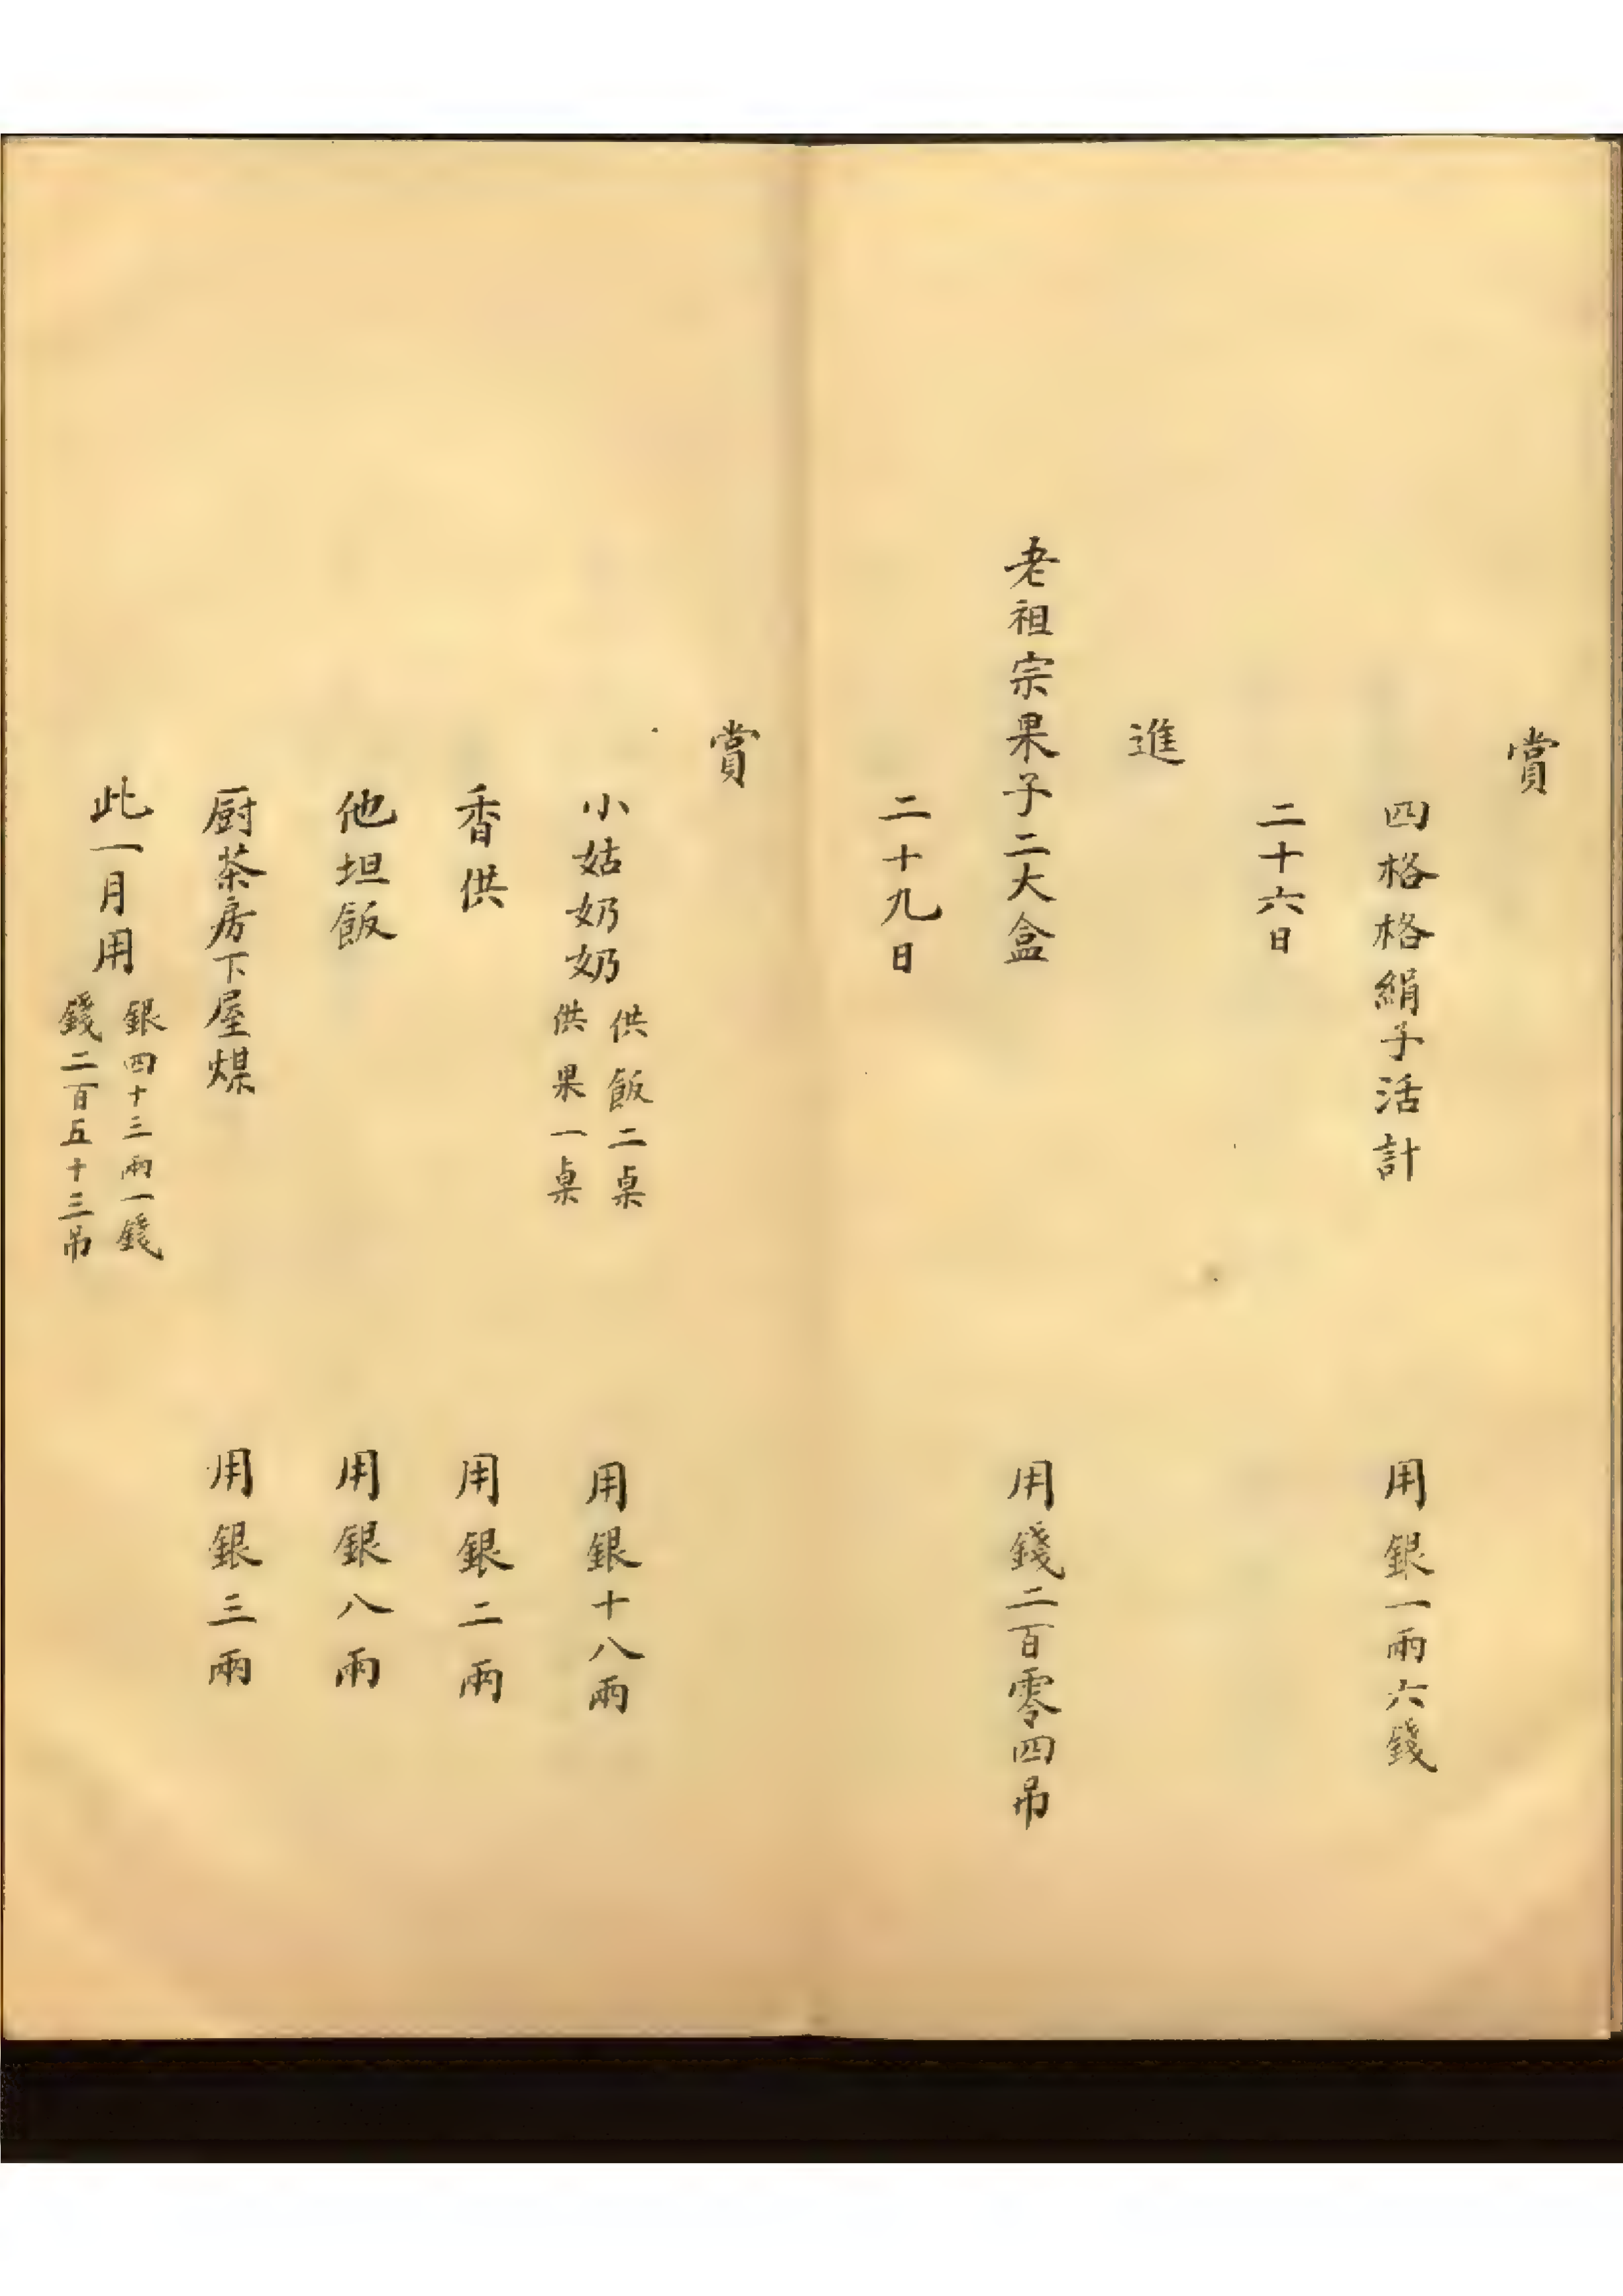 賞
四格格絹子活計 用銀一兩六錢
二十六日
進
老祖宗果子二大盒 用錢二百零四吊
二十九日
賞
小姑奶奶 供飯二桌 供果一桌 用銀十八兩
香供 用銀二兩
他坦飯 用銀八兩
厨茶房下屋煤 用銀三兩
此一月用 銀四十三兩一錢 錢二百五十三吊